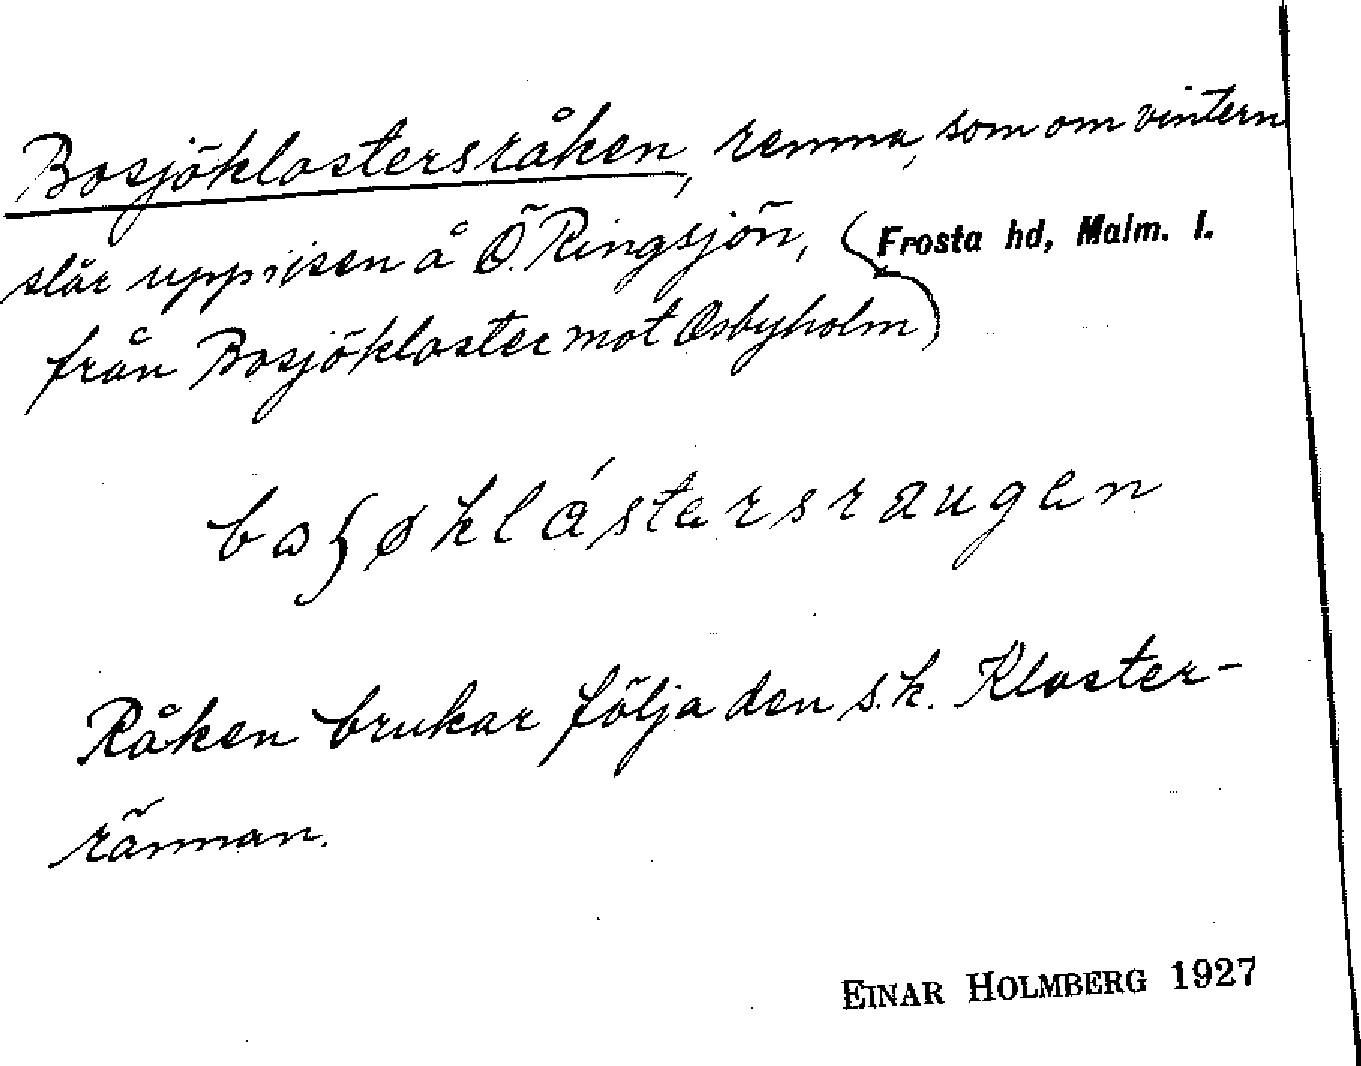 Bosjöklostersråken, remma, som om vintern
slår upp i isen å Ö. Ringsjön, Frosta hd, Malm. l.
från Bosjökloster mot Osbyholm
Råken brukar följa den s.k. Kloster-
rännan.
EINAR HOLMBERG 1927